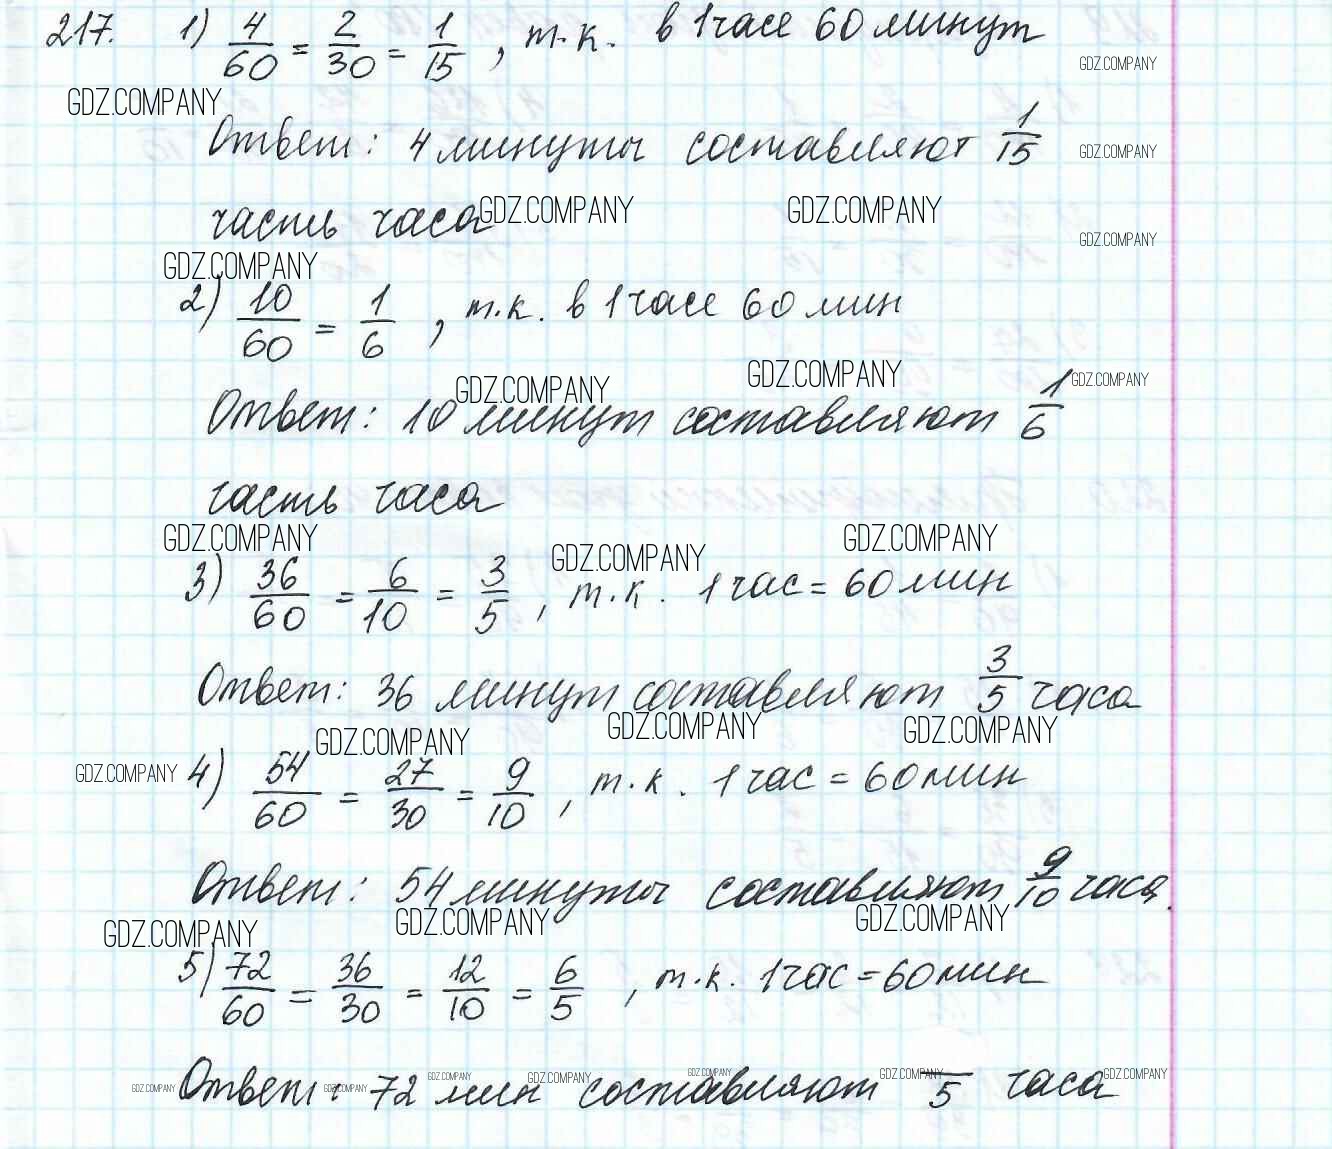 217. 1) 4/60 = 2/30 = 1/15, т.к. в 1 часе 60 минут
GDZ.COMPANY
GDZ.COMPANY
Ответ: 4 минуты составляют 1/15
GDZ.COMPANY
часть часа
GDZ.COMPANY GDZ.COMPANY
GDZ.COMPANY
GDZ.COMPANY
2) 10/60 = 1/6, т.к. в 1 часе 60 мин
GDZ.COMPANY GDZ.COMPANY GDZ.COMPANY
Ответ: 10 минут составляют 1/6
часть часа
GDZ.COMPANY GDZ.COMPANY GDZ.COMPANY
3) 36/60 = 6/10 = 3/5, т.к. 1 час = 60 мин
Ответ: 36 минут составляют 3/5 часа
GDZ.COMPANY GDZ.COMPANY GDZ.COMPANY
GDZ.COMPANY
4) 54/60 = 27/30 = 9/10, т.к. 1 час = 60 мин
Ответ: 54 минуты составляют 9/10 часа.
GDZ.COMPANY GDZ.COMPANY GDZ.COMPANY
5) 72/60 = 36/30 = 12/10 = 6/5, т.к. 1 час = 60 мин
GDZ.COMPANY GDZ.COMPANY GDZ.COMPANY GDZ.COMPANY GDZ.COMPANY GDZ.COMPANY GDZ.COMPANY
Ответ: 72 мин составляют /5 часа